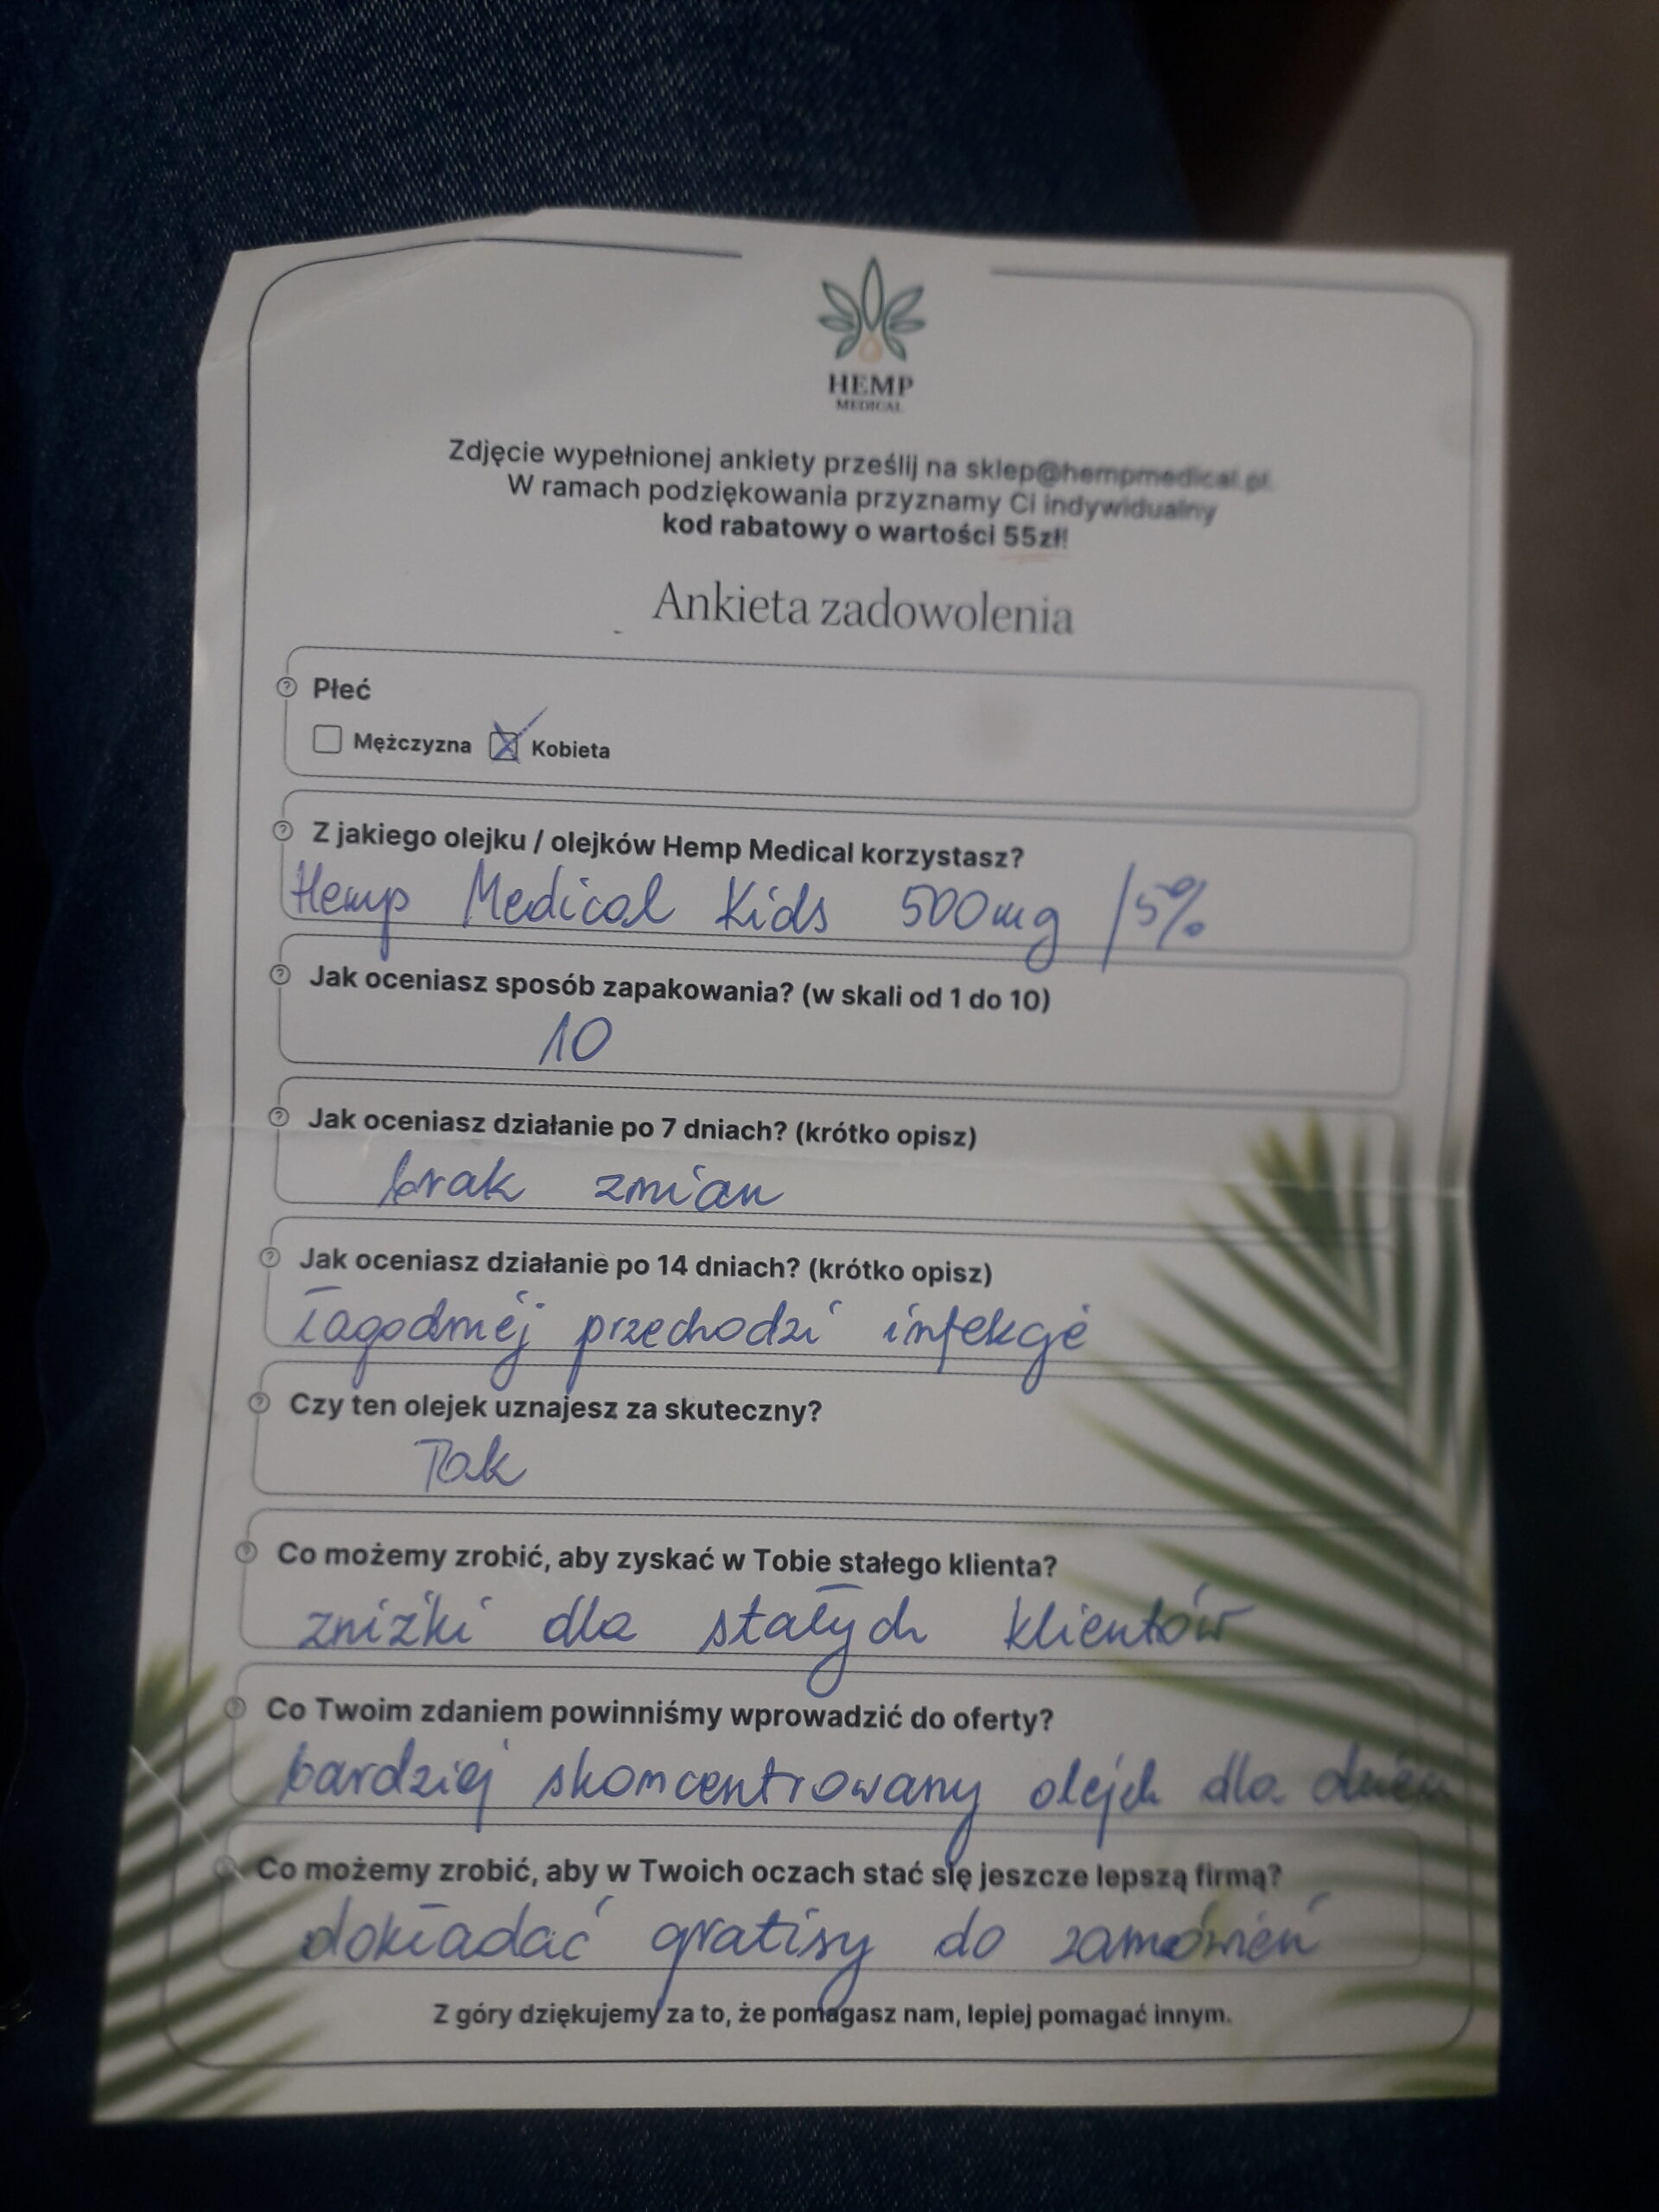 HEMP
MEDICAL
Zdjęcie wypełnionej ankiety prześlij na sklep@hempmedical.pl.
W ramach podziękowania przyznamy Ci indywidualny
kod rabatowy o wartości 55zł!
Ankieta zadowolenia
Płeć
Mężczyzna Kobieta
Z jakiego olejku / olejków Hemp Medical korzystasz?
Hemp Medical Kids 500mg /5%
Jak oceniasz sposób zapakowania? (w skali od 1 do 10)
10
Jak oceniasz działanie po 7 dniach? (krótko opisz)
brak zmian
Jak oceniasz działanie po 14 dniach? (krótko opisz)
łagodniej przechodzi infekcje
Czy ten olejek uznajesz za skuteczny?
Tak
Co możemy zrobić, aby zyskać w Tobie stałego klienta?
zniżki dla stałych klientów
Co Twoim zdaniem powinniśmy wprowadzić do oferty?
bardziej skoncentrowany olejek dla
Co możemy zrobić, aby w Twoich oczach stać się jeszcze lepszą firmą?
dokładać gratisy do zamówień
Z góry dziękujemy za to, że pomagasz nam, lepiej pomagać innym.